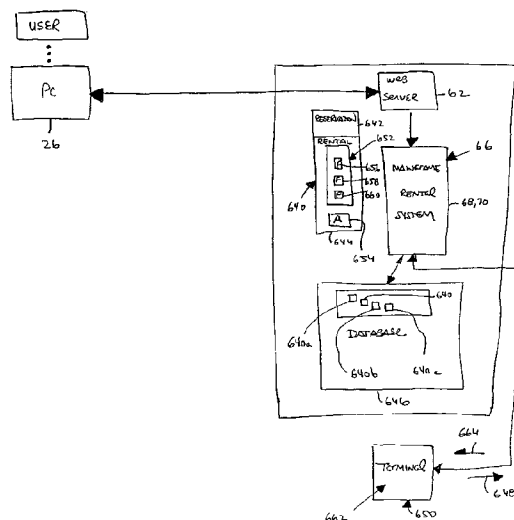 USER
PC
26
WEB
SERVER
62
RESERVATION
642
RENTAL
652
656
658
660
640
A
644
654
66
MAINFRAME
RENTAL
SYSTEM
68,70
640
640a
DATABASE
640b
640c
646
664
TERMINAL
648
662
650